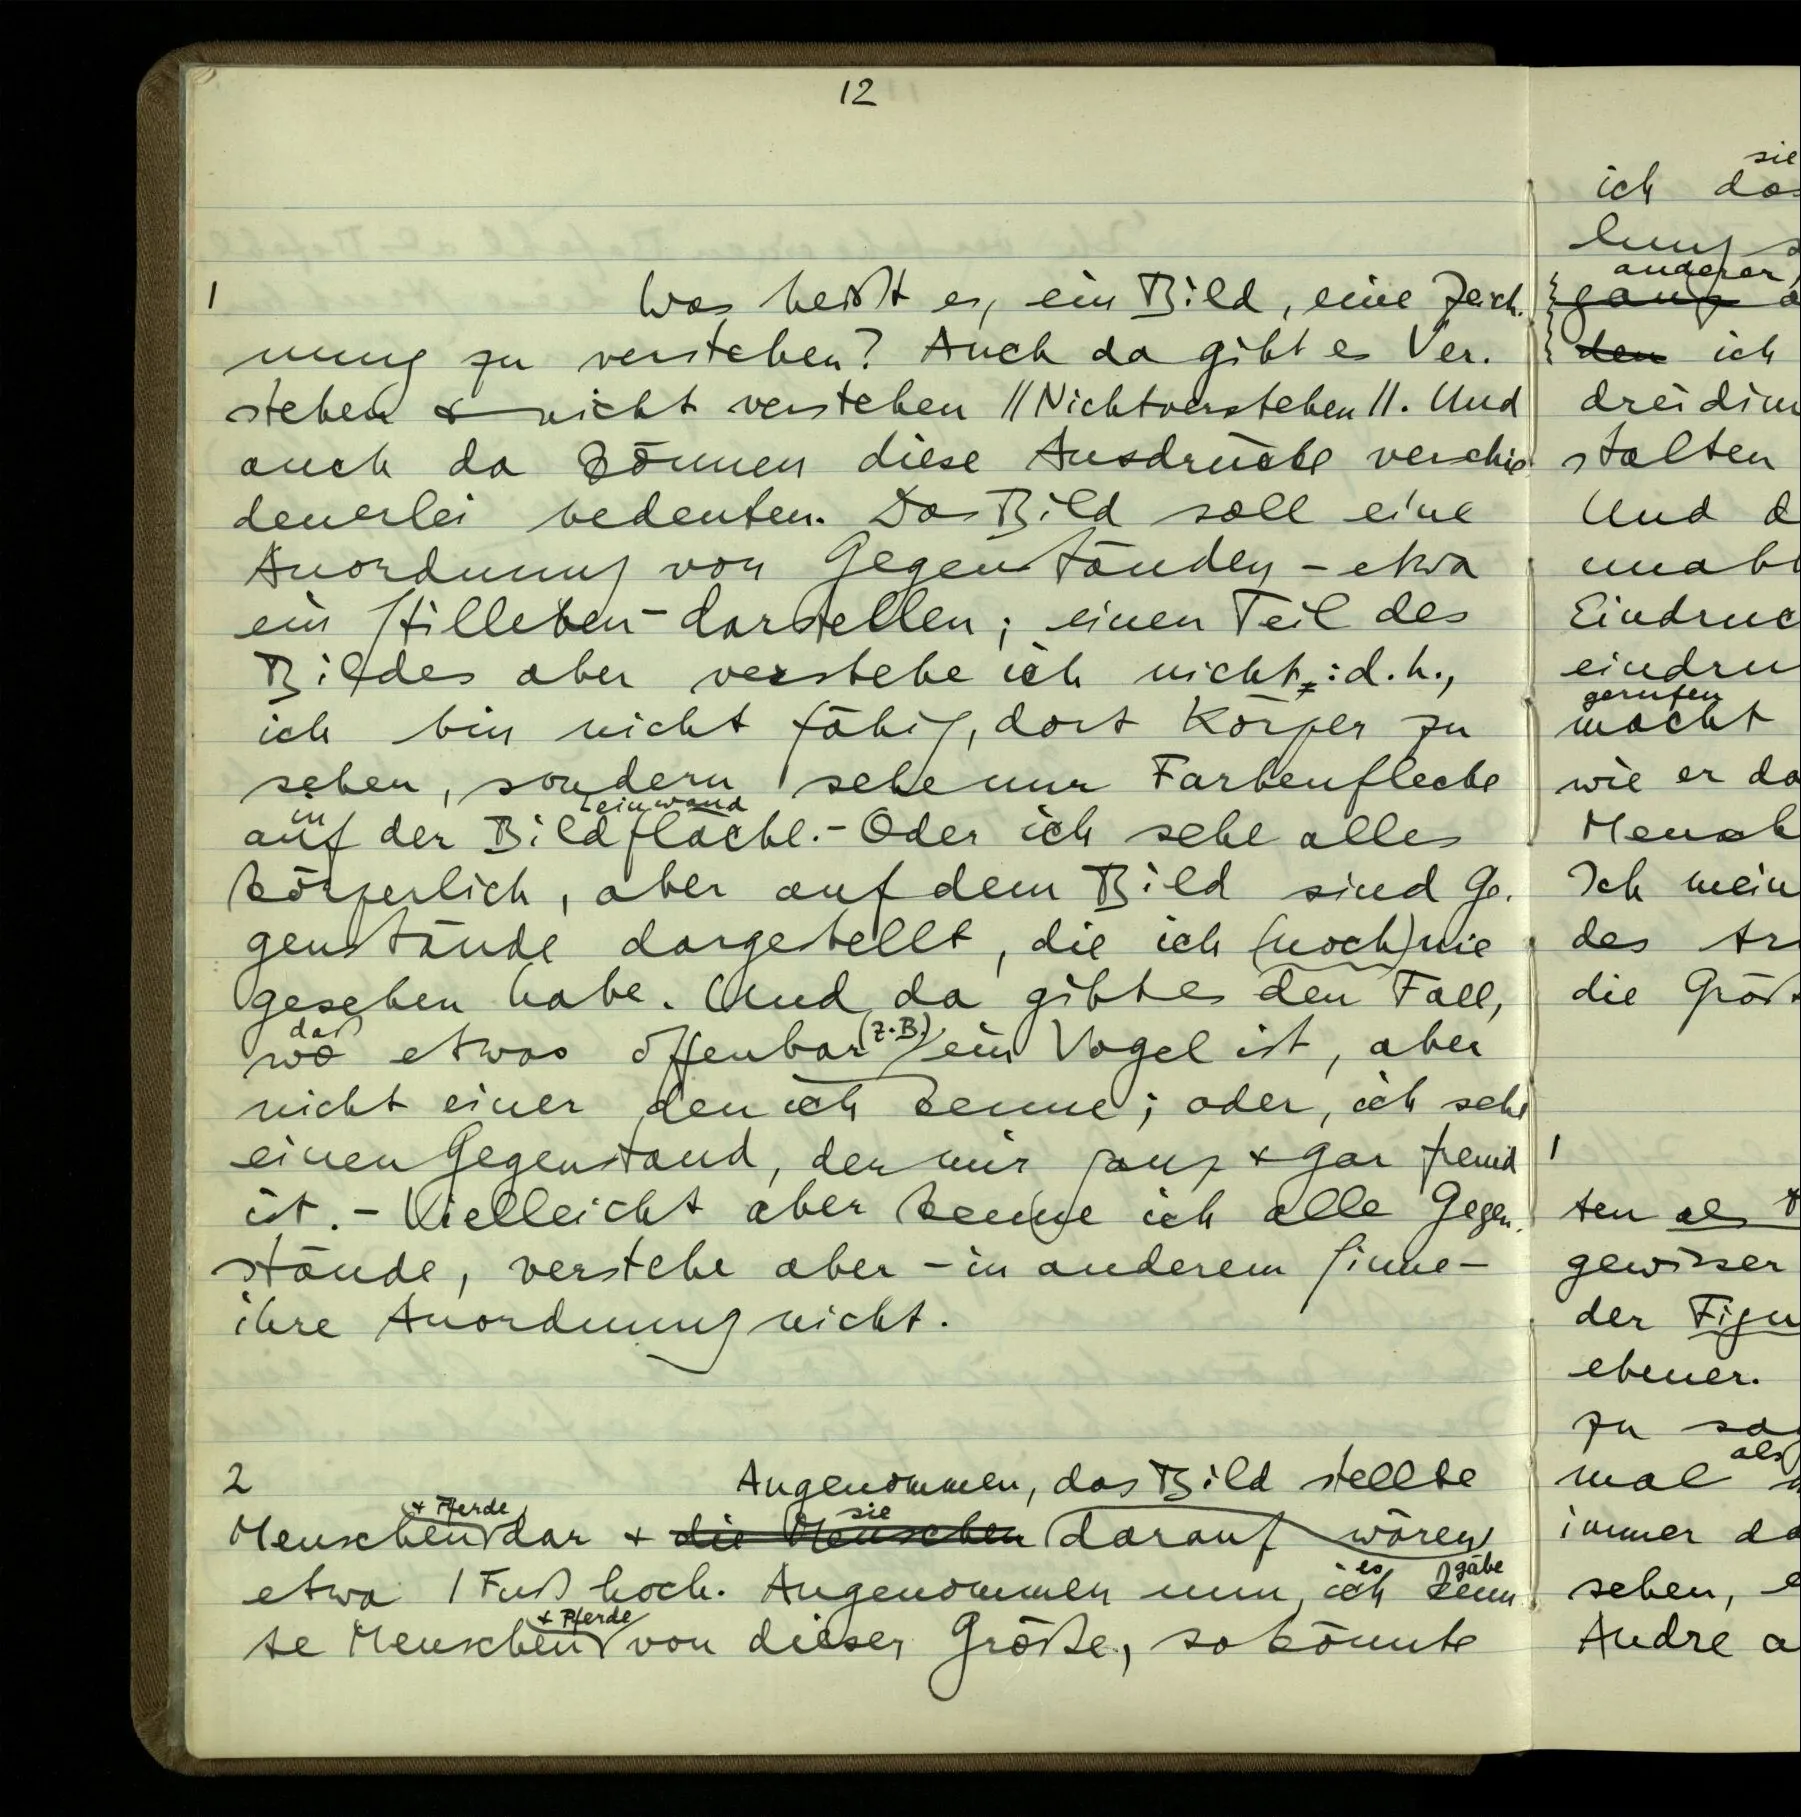 12
1 Was heißt es, ein Bild, eine Zeich-
nung zu verstehen? Auch da gibt es Ver-
stehen & nicht verstehen //Nichtverstehen//. Und
auch da können diese Ausdrücke verschie-
denerlei bedeuten. Das Bild soll eine
Anordnung von Gegenständen – etwa
ein Stilleben – darstellen; einen Teil des
Bildes aber verstehe ich nicht: d.h.,
ich bin nicht fähig, dort Körper zu
sehen, sondern sehe nur Farbenflecke
in leinwand
auf der Bildfläche. – Oder ich sehe alles
körperlich, aber auf dem Bild sind Ge-
genstände dargestellt, die ich (noch) nie
gesehen habe. Und da gibt es den Fall,
daß (z.B.)
wo etwas offenbar ein Vogel ist, aber
nicht einer den ich kenne; oder, ich sehe
einen Gegenstand, der mir ganz & gar fremd
ist. – Vielleicht aber kenne ich alle Gegen-
stände, verstehe aber – in anderem Sinne –
ihre Anordnung nicht.
2 Angenommen, das Bild stellte
& Pferde sie
Menschen dar & die Menschen darauf wären
es gäbe
etwa 1 Fuß hoch. Angenommen nun, ich kenn-
& Pferde
te Menschen von dieser Größe, so könnte
sie
ich das
lung
anderer,
ganz
den ich
dreidim
stalten
Und d
unabh
Eindruc
eindru
gerufen
macht
wie er da
Mensch
Ich mein
des
die Größ
1
ten als
gewisser
der Figu
ebener.
zu sa
als
mal
immer da
sehen, e
Andre a